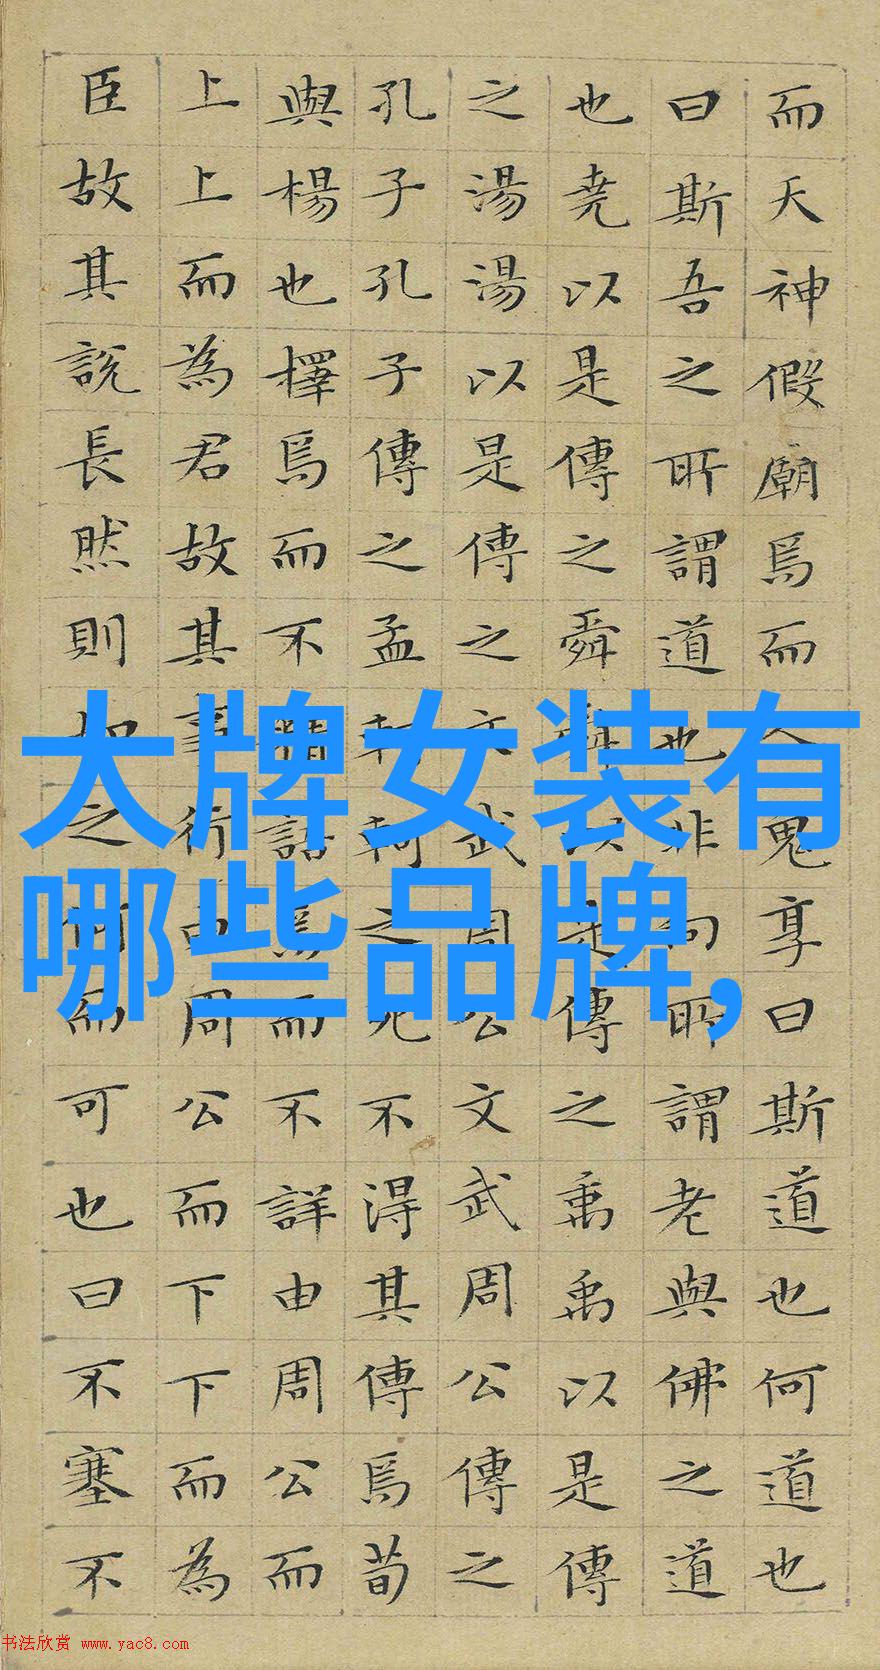 而天神假廟焉而人鬼享曰斯道也何道也
曰斯吾之所謂道也非向所謂老與佛之道
也堯以是傳之舜舜以是傳之禹禹以是傳
之湯湯以是傳之文武周公文武周公傳之
孔子孔子傳之孟軻軻之死不得其傳焉荀
與楊也擇焉而不精語焉而不詳由周公而
上上而為君故其事行由周公而下下而為
臣故其說長然則如之何而可也曰不塞不
大牌女装有
哪些品牌,
书法欣赏 www.yac8.com